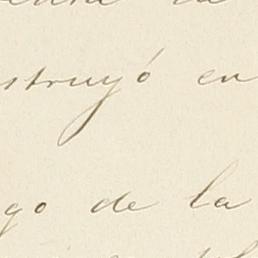 struyó en
go de la